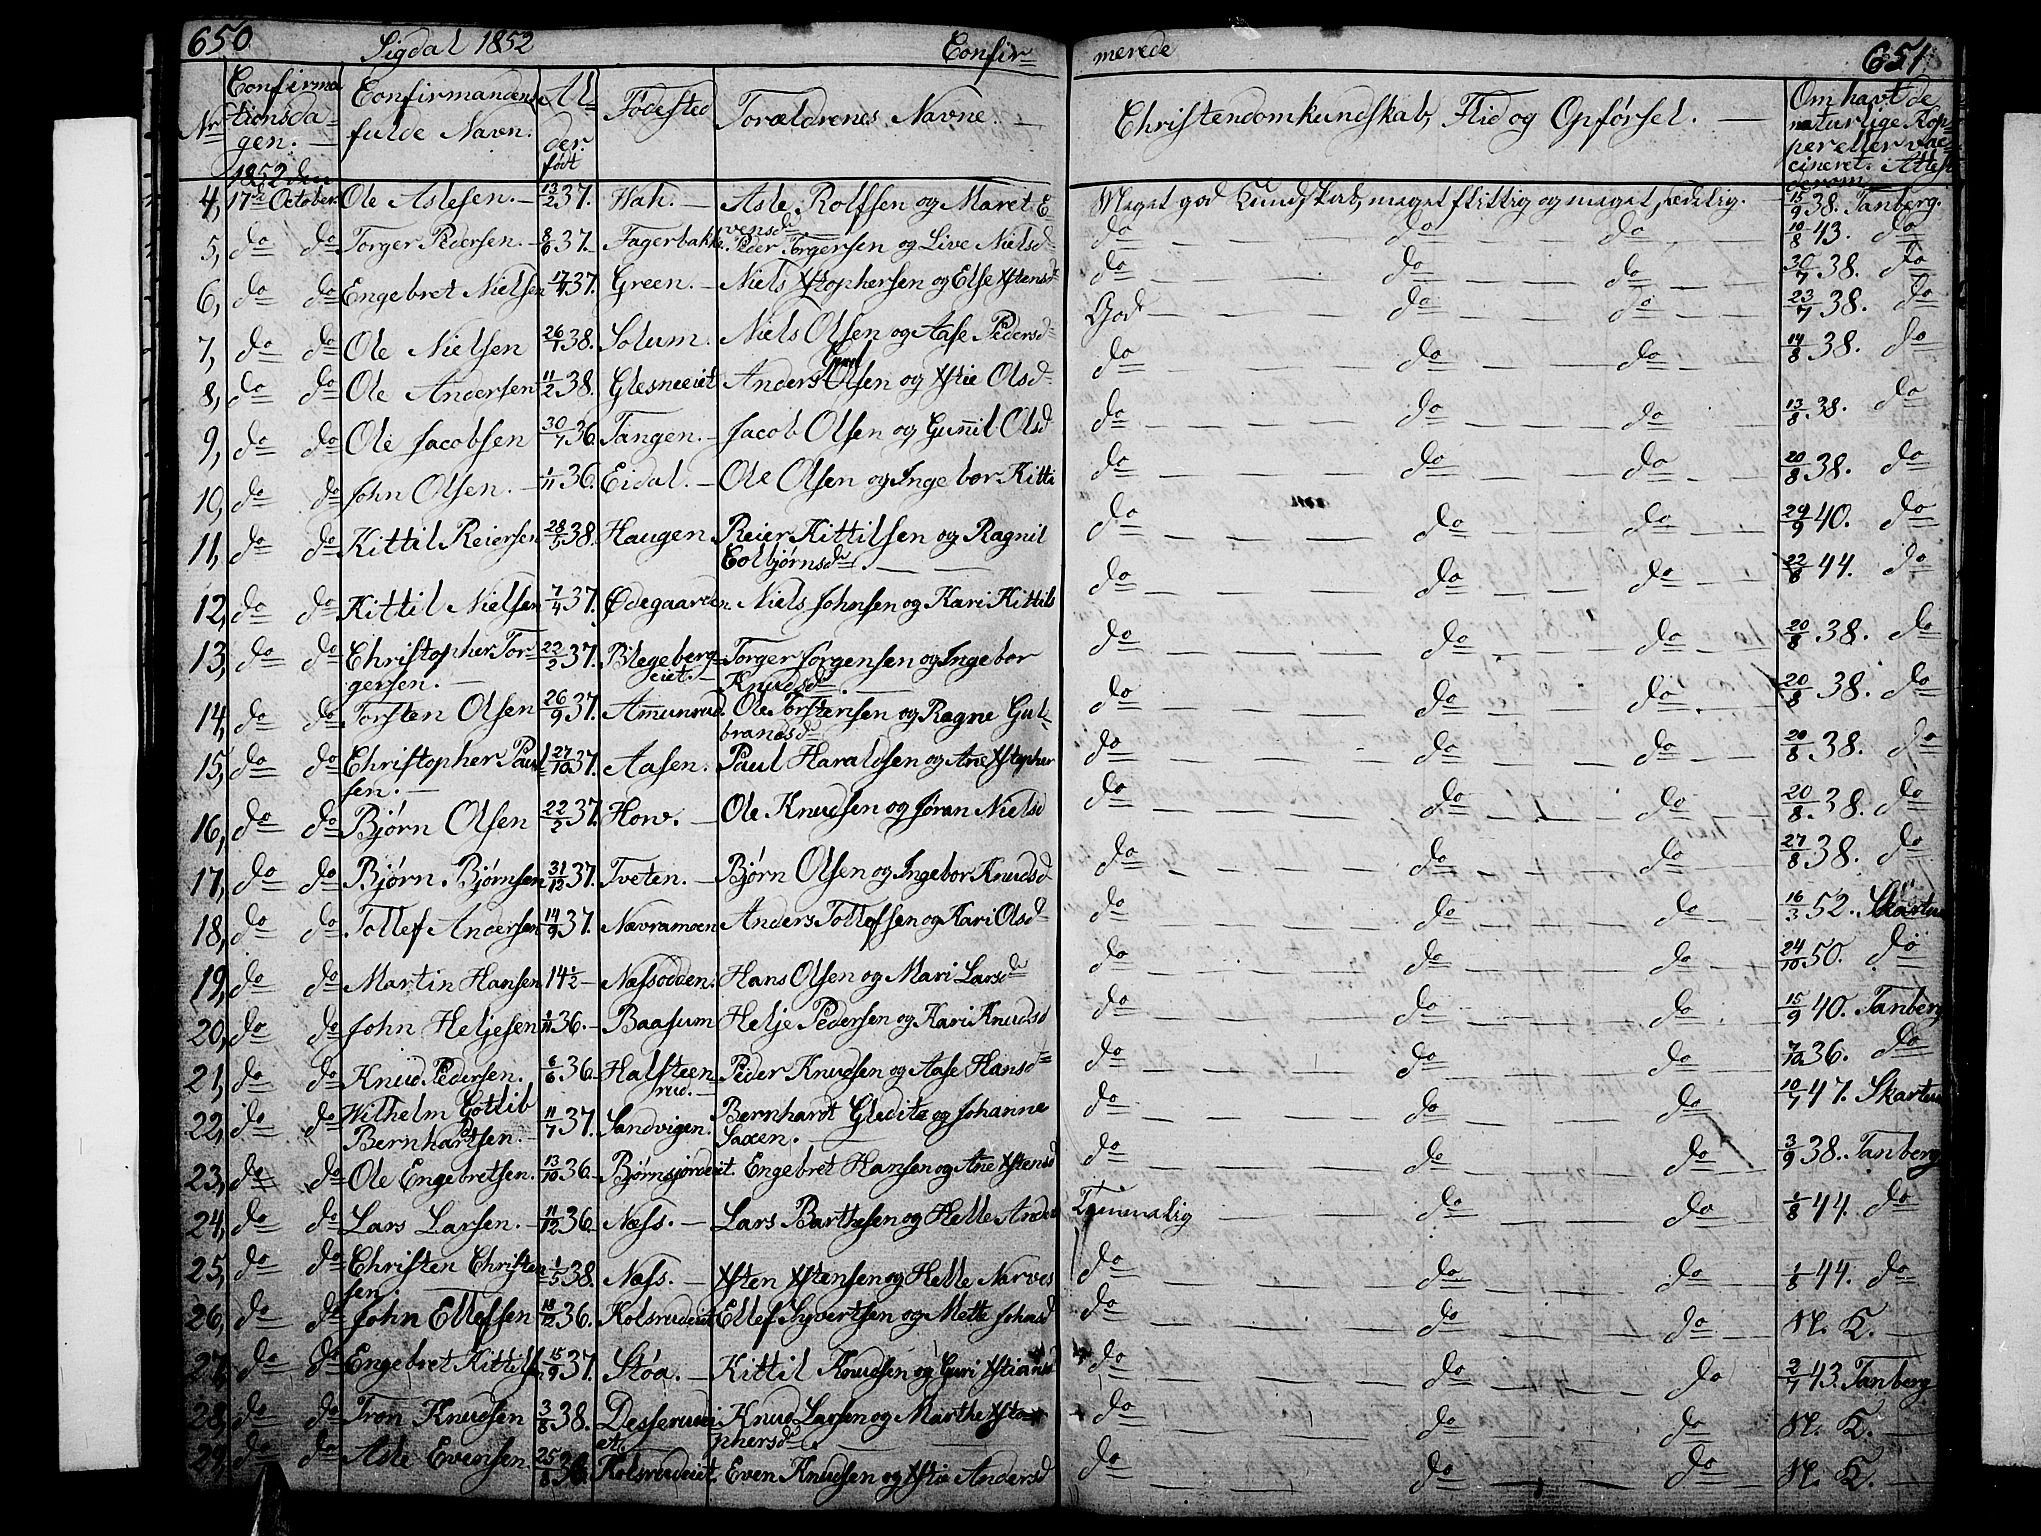 650 Sigdal 1852 Confir- merede 651
Nr Confirmationsdagen. 1852 den Confirmandens fulde Navn. Alder. født Fødested Forældrenes Navne. Christendomkundskab, Flid og Opførsel. Om havt de naturlige Kopper eller vaccineret. Attest derom
4, 17de October Ole Aslesen. 13/2 37. Hah. Asle Rolfsen og Maret Evensd Meget god Kundskab, meget flittig og meget sædelig. 15/9 38. Tanberg.
5, do do Torger Pedersen. 8/6 37. Fagerbakke. Peder Torgersen og Live Nielsd do do do 10/8 43. do
6, do do Engebret Nielsen 17/4 37. Green. Niels Xstophersen og Else Xstensd do do do 30/7 38. do
7, do do Ole Nielsen 26/1 38. Solum. Niels Olsen og Aase Pedersd God do do 23/7 38. do
8, do do Ole Andersen 11/2 38. Glesneeiet Anders Olsen og Xstie Olsd do do do 14/8 38. do
9, do do Ole Jacobsen 30/7 36 Tangen. Jacob Olsen og Gunnil Olsd do do do 13/8 38. do
10, do do John Olsen. 1/11 36. Eidal. Ole Olsen og Ingebor Kitti do do do 20/8 38. do
11, do do Kittil Reiersen 28/5 38. Haugen Reier Kittilsen og Ragnil Eolbjørnsd. do do do 29/9 40. do
12, do do Kittil Nielsen 7/4 37. Ødegaarden Niels Johnsen og Kari Kittils do do do 22/8 44. do
13, do do Christopher Torgersen. 22/2 37. Blegebergeiet. Torger Jørgensen og Ingebor Knudsd. do do do 20/8 38. do
14, do do Torsten Olsen 26/9 37. Amunrud. Ole Torstensen og Ragne Gulbrandsd do do do 20/8 38. do
15, do do Christopher Paulsen. 27/10 37. Aasen. Paul Haraldsen og Ane Xstopher do do do 20/8 38. do
16, do do Bjørn Olsen 22/2 37. How. Ole Knudsen og Jøran Nielsd do do do 20/8 38. do
17, do do Bjørn Bjørnsen 31/12 37. Tveten. Bjørn Olsen og Ingebor Knudsd do do do 27/8 38. do
18, do do Tollef Andersen 14/9 37. Nævramoen Anders Tollefsen og Kari Olsd do do do 16/3 52. Skartu
19, do do Martin Hansen 14 1/2 Næssodden. Hans Olsen og Mari Larsd do do do 24/10 50. do
20, do do John Heljesen 1/11 36. Baasum Helje Pedersen og Kari Knudsd do do do 15/9 40. Tanberg
21, do do Knud Pedersen. 6/6 36. Halsteenrud. Peder Knudsen og Aase Hansd do do do 7/10 36. do
22, do do Wilhelm Gotlib Bernhartsen. 11/7 37. Sandvigen. Bernhardt Gledits og Johanne Saxen. do do do 10/7 47. Skartu
23, do do Ole Engebretsen. 13/10 36. Bjørnsjordeiet. Engebret Hansen og Ane Xstensd do do do 3/9 38. Tanberg
24, do do Lars Larsen. 11/12 36. Næss. Lars Barthesen og Helle Anders Temmelig do do 1/8 44. do
25, do do Christen Christensen. 1/5 38. Næss. Xsten Xstensen og Helle Narves do do do 1/8 44. do
26, do do John Ellefsen 18/12 36. Kolsrudeiet Ellef Syvertsen og Mette Johnsd do do do N. K.
27, do do Engebret Kittilsen 15/9 37. Støa. Kittil Knudsen og Guri Xstiansd do do do 2/7 43. Tanberg
28, do do Tron Knudsen 3/8 38. Desserudeiet. Knud Larsen og Marthe Xstophersd. do do do N. K.
29, do do Asle Evensen. 25/8 36. Kolsrudeiet. Even Knudsen og Xstie Andersd do do do N. K.